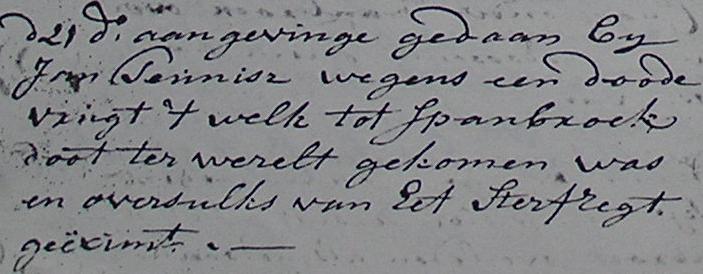 d 21 d:° aangevinge gedaan by
Jan Teunisz wegens een doode
vrugt 't welk tot Spanbroek
doot ter werelt gekomen was
en oversulks van het Sterfregt
geëximt. —